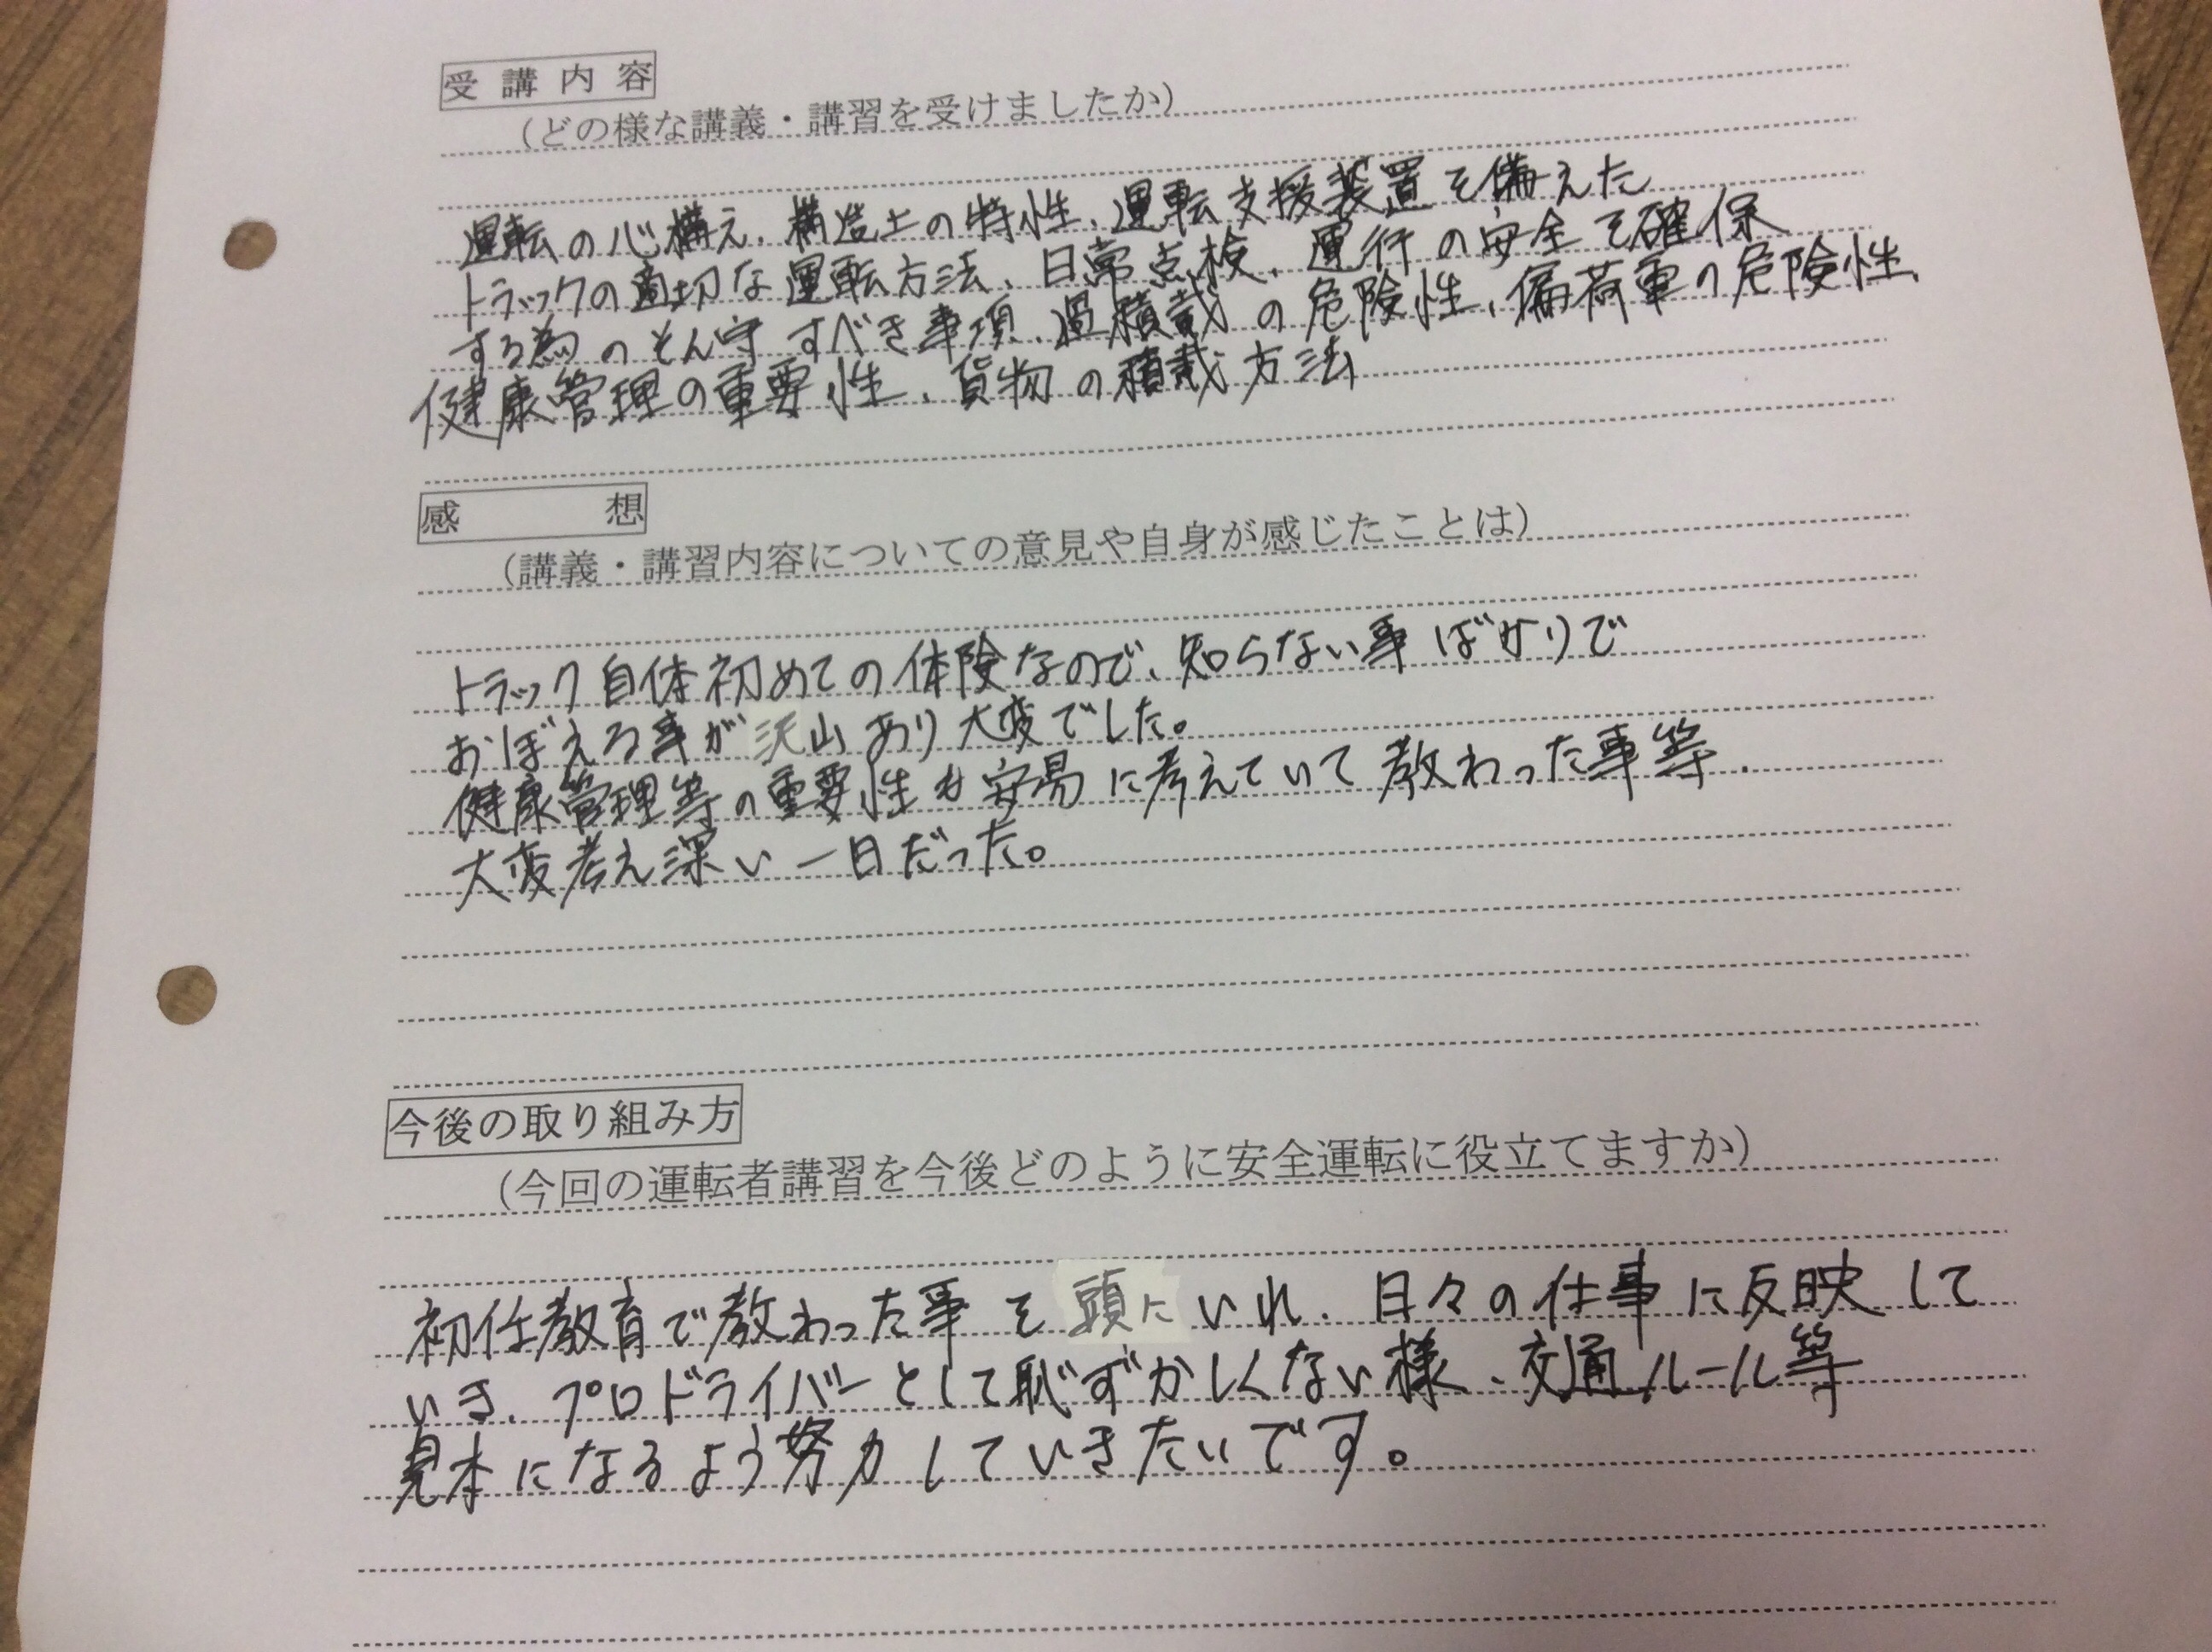 受講内容
(どの様な講義・講習を受けましたか)
運転の心構え、構造上の特性、運転支援装置を備えた
トラックの適切な運転方法、日常点検、運行の安全を確保
する為のそん守すべき事項、過積載の危険性、偏荷重の危険性、
健康管理の重要性、貨物の積載方法
感想
(講義・講習内容についての意見や自身が感じたことは)
トラック自体初めての体険なので、知らない事ばかりで
おぼえる事が沢山あり大変でした。
健康管理等の重要性も安易に考えていて教わった事等、
大変考え深い一日だった。
今後の取り組み方
(今回の運転者講習を今後どのように安全運転に役立てますか)
初任教育で教わった事を頭にいれ、日々の仕事に反映して
いき、プロドライバーとして恥ずかしくない様、交通ルール等
見本になるよう努力していきたいです。